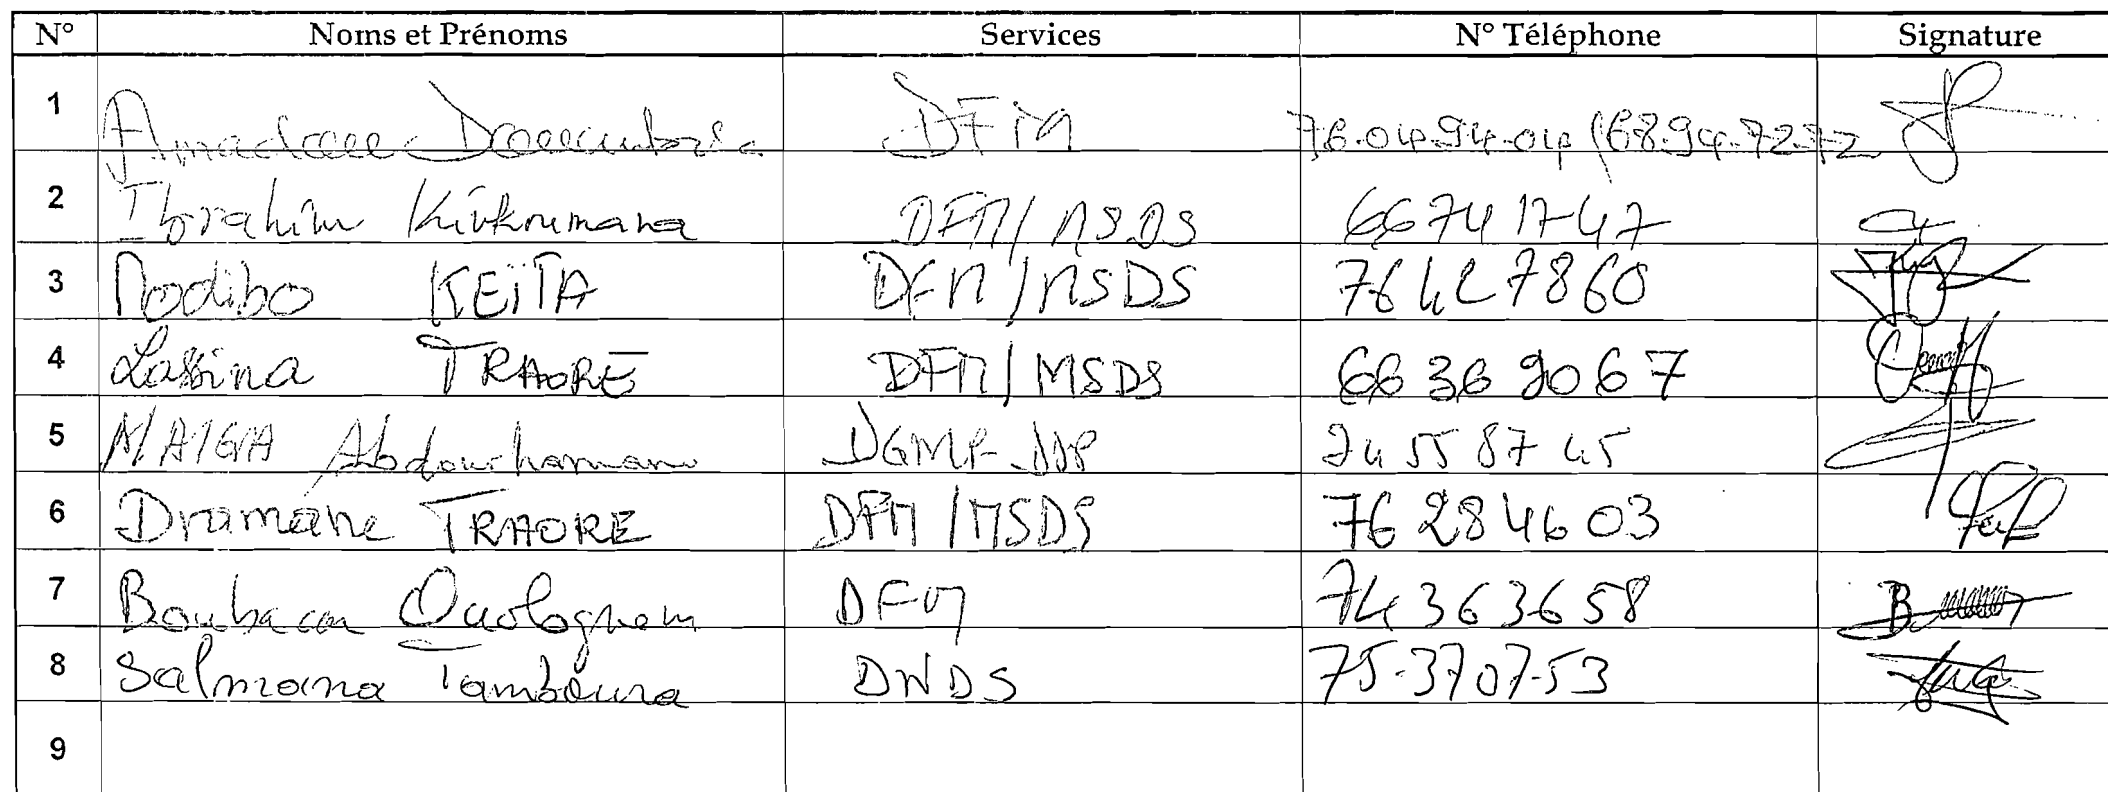 N° Noms et Prénoms Services N° Téléphone Signature
1 Amadou Doumbia DFM 76.04.94.04 / 68.94.72.72
2 Ibrahim DFM/MSDS 66741747
3 Modibo KEÏTA DFM/MSDS 76427860
4 Lassina TRAORE DFM/MSDS 66 36 90 67
5 MAIGA Abdourhamane DGMP-DSP 55 87 45
6 Dramane TRAORE DFM/MSDS 76 28 46 03
7 Boubacar Ouologuem DFM 74 36 36 58
8 Salmana Tamboura DNDS 75-37 07-53
9